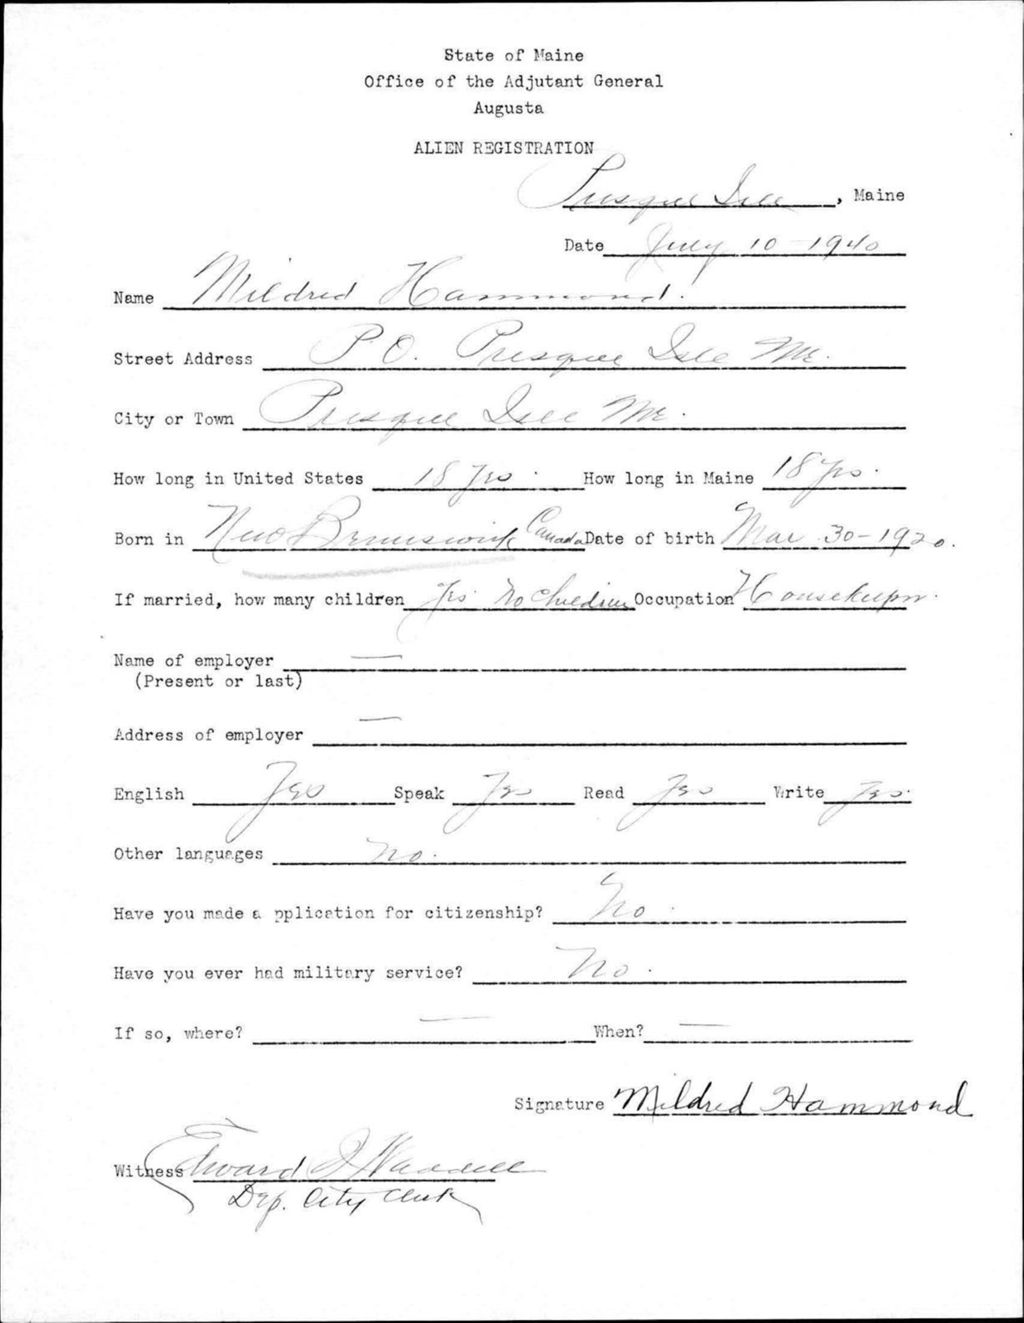 State of Maine
Office of the Adjutant General
Augusta
ALIEN REGISTRATION
Presque Isle, Maine
Date July 10 - 1940
Name Mildred Hammond.
Street Address P.O. Presque Isle Me.
City or Town Presque Isle Me.
How long in United States 18 Yrs. How long in Maine 18 Yrs.
Born in New Brunswick Canada Date of birth Mar. 30 - 1920.
If married, how many children Yes No Children Occupation Housekeeper.
Name of employer —
(Present or last)
Address of employer —
English Yes Speak Yes Read Yes Write Yes.
Other languages No.
Have you made a pplication for citizenship? No.
Have you ever had military service? No.
If so, where? — When? —
Signature Mildred Hammond
Witness Edward J Waddell
Dep. City Clerk